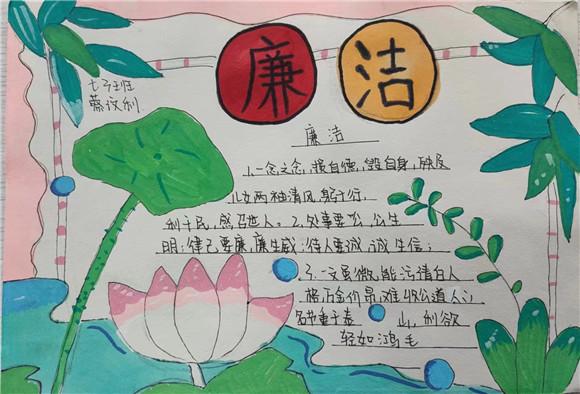 廉 洁
七3班
蔡汶利
廉洁
1、一念之念,损自德,毁自身,殃及
儿女两袖清风,躬于行,
利于民,感召世人。2、处事要公,公生
明;律己要廉,廉生威;待人要诚,诚生信;
3、一文虽微,能污清白人
格万金价昂,难收公道人心
名节重于泰 山,利欲
轻如鸿毛